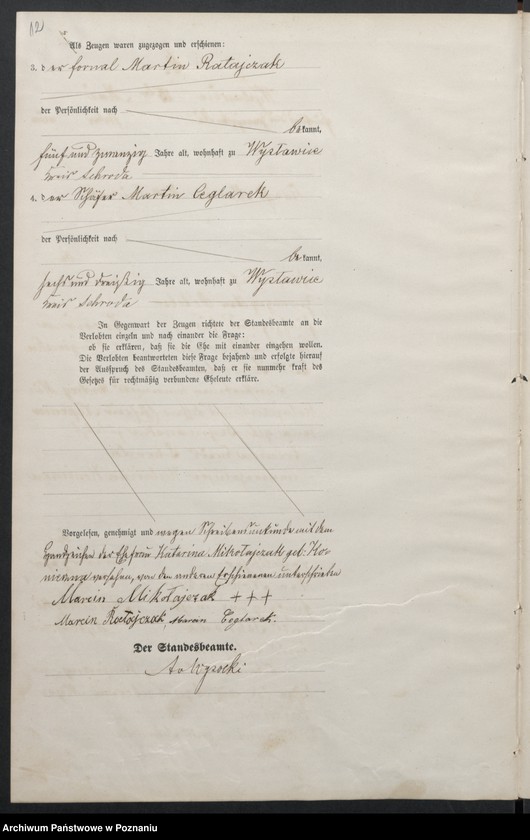 12
Als Zeugen waren zugezogen und erschienen:
3. der Fornal Martin Ratajczak
der Persönlichkeit nach
bekannt,
fünf und zwanzig Jahre alt, wohnhaft zu Wysławice
Kreis Schroda
4. der Schäfer Martin Ceglarek
der Persönlichkeit nach
bekannt,
sechs und dreißig Jahre alt, wohnhaft zu Wysławice
Kreis Schroda
In Gegenwart der Zeugen richtete der Standesbeamte an die
Verlobten einzeln und nach einander die Frage:
ob sie erklären, daß sie die Ehe mit einander eingehen wollen.
Die Verlobten beantworteten diese Frage bejahend und erfolgte hierauf
der Ausspruch des Standesbeamten, daß er sie nunmehr kraft des
Gesetzes für rechtmäßig verbundene Eheleute erkläre.
Vorgelesen, genehmigt und wegen Schreibensunkunde mit dem
Handzeichen der Ehefrau Katarina Mikołajczak geb.
versehen, von den anderen Erschienenen unterschrieben
Marcin Mikołajczak +++
Marcin Ratajczak, Marcin Ceglarek.
Der Standesbeamte.
Archiwum Państwowe w Poznaniu